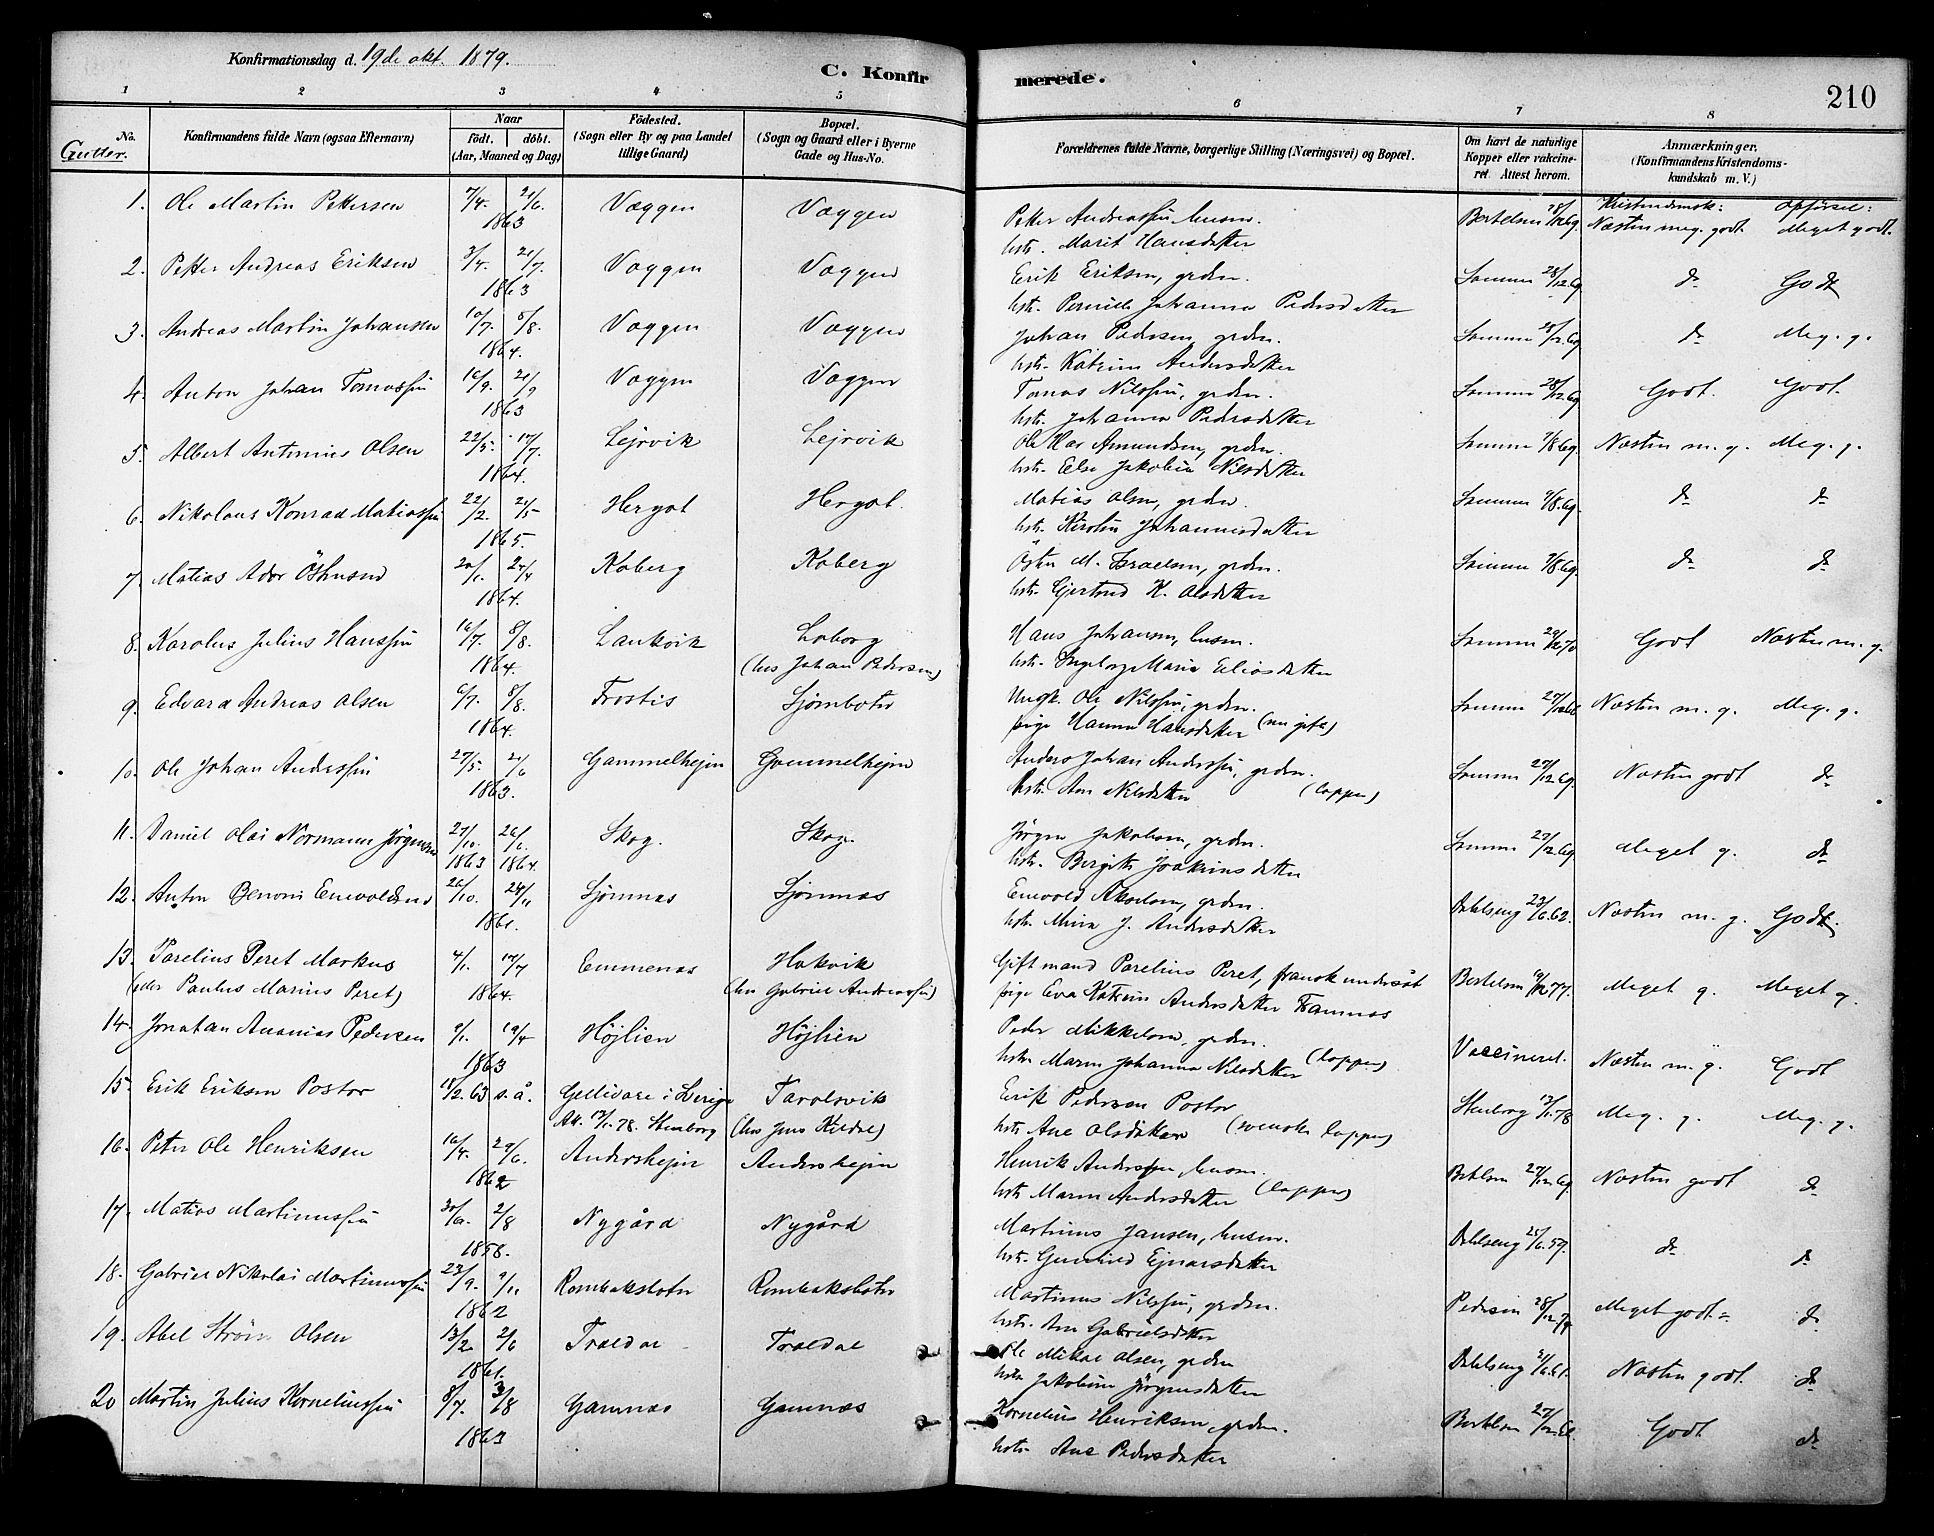 Konfirmationsdag d. 19de okt. 1879.
C. Konfir
merede.
210
1 2 3 4 5 6 7 8
No. Gutter.
Konfirmandens fulde Navn (ogsaa Efternavn)
Naar
födt. döbt.
(Aar, Maaned og Dag)
Födested.
(Sogn eller By og paa Landet
tillige Gaard)
Bopæl.
(Sogn og Gaard eller i Byerne
Gade og Hus-No.
Forældrenes fulde Navne, borgerlige Stilling (Næringsvei) og Bopæl.
Om havt de naturlige
Kopper eller vakcine-
ret. Attest herom.
Anmærkninger.
(Konfirmandens Kristendoms-
kundskab m. V.)
Kristendomsk: Opförsel:
1. Ole Martin Pettersen 7/4. 21/6. 1863 Væggen Væggen
Petter Andreassen husm.
hstr. Marit Hansdatter
Bertelsen Næsten meg. godt Meget godt.
2. Petter Andreas Eriksen 3/4. 21/7. 1863 Væggen Væggen
Erik Eriksen, grdm.
hstr. Pernille Johanna Pedersdatter
Sommer 28/12.69 do Godt
3. Andreas Martin Johansen 10/7. 8/8. 1864. Væggen Væggen
Johan Pedersen, grdm.
hstr. Katrine Andersdatter
Sommer 28/12.69 do Meg. g.
4. Anton Johan Tomassen 16/9. 21/9 1863 Væggen Væggen
Tomas Nilssen, grdm.
hstr. Johanna Pedersdatter
Sommer 28/12.69 Godt. Godt.
5. Albert Antonius Olsen 22/5. 17/7. 1864. Lejrvik Lejrvik
Ole Kar Amundsen, grdm.
hstr. Else Jakobine Nilsdatter
Sommer 7/8.69. Næsten m. g. Meg. g.
6. Nikolaus Konrad Matiassen 22/2. 21/5 1865. Hergot Hergot.
Matias Olsen, grdm.
hstr. Karolin Johannesdatter
Sommer 7/8.69. do do
7. Matias Ador Östensen 20/1. 24/4 1864. Koberg Koberg
Östen M. Israelsen, grdm.
hstr. Gjertrud K. Olsdatter
Sommer 7/8.69. do do
8. Karolus Julius Hanssen 16/7. 8/8. 1864. Lankvik Loborg
(hos Johan Pedersen)
Hans Johansen, husm.
hstr. Ingeborg Maria Eliasdatter
Sommer 29/12.70 Godt Næsten m. g.
9. Edvard Andreas Olsen 6/7. 8/8. 1864. Frostis Sjømbotn
Ungk. Ole Nilssen, grdm.
pige Hanna Hansdatter (nu gift)
Sommer Næsten m. g. Meg. g.
10. Ole Johan Anderssen 27/5. 21/6 1863. Gammelhejen Gammelhejen
Anders Johan Anderssen, grdm.
hstr. Ane Nilsdatter (lapper)
Sommer 27/12.69. Næsten godt do
11. Daniel Olai Normann Jörgensen 27/10. 26/6. 1863 1864. Skog. Skog.
Jörgen Jakobsen, grdm.
hstr. Bergitte Joakimsdatter
Sommer 27/12.69. Meget g. do
12. Anton Benoni Enevoldsen 26/10. 24/11 1861. Sjömnæs Sjömnæs
Enevold Akselsen, grdm.
hstr. Mina J. Andersdatter
Dahlseng 23/6.62. Næsten m. g. Godt.
13. Parelius Peret Markus 4/1. 17/7 1864. Emmenæs Hakvik
(eller Paulus Marius Peret) (hos Gabriel Andreassen)
Gift mand Parelius Peret, fransk undersåt
pige Eva Katrine Andersdatter Framnæs
Bertelsen Meget g. Meget g.
14. Jonatan Ananias Pedersen 9/1. 19/4 1863 Højlien Højlien
Peder Mikkelsen, grdm.
hstr. Maren Johanna Nilsdatter (lapper)
Vaccineret. Næsten m. g. Godt
15. Erik Eriksen Postor 18/2. 63 s. å. Gellivare i Sverige Taraldsvik
Att. 17/1. 78. Stenborg (hos Jens Kildal)
Erik Pedersen Postor
hstr. Ane Olsdatter (svenske lapper)
Stenborg 17/1.78 Meg. g. Meg. g.
16. Peter Ole Henriksen 16/4. 29/6. 1862 Andershejen Andershejen
Henrik Anderssen, husm.
hstr. Maren Andersdatter (lapper)
Bertelsen 27/12.69. Næsten godt do
17. Matias Martinussen 30/6. 2/8 1858. Nygård Nygård
Martinus Jansen, husm.
hstr. Gunhild Ejnarsdatter
Dahlseng 25/6.59. do do
18. Gabriel Nikolai Martinussen 23/9. 9/11 1862 Rombaksbotn Rombaksbotn
Martinus Nilssen, grdm.
hstr. Ane Gabrielsdatter
Pedersen Meget godt. do
19. Abel Ström Olsen 13/2. 2/6 1861. Trældal Trældal
Ole Mikal Olsen, grdm
hstr. Jakobine Jörgensdatter
Dahlseng Næsten godt. do
20 Martin Julius Korneliussen 8/7. 3/8 1863 Gamnæs Gamnæs
Kornelius Henriksen, grdm.
hstr. Ane Pedersdatter
Bertelsen Godt. do